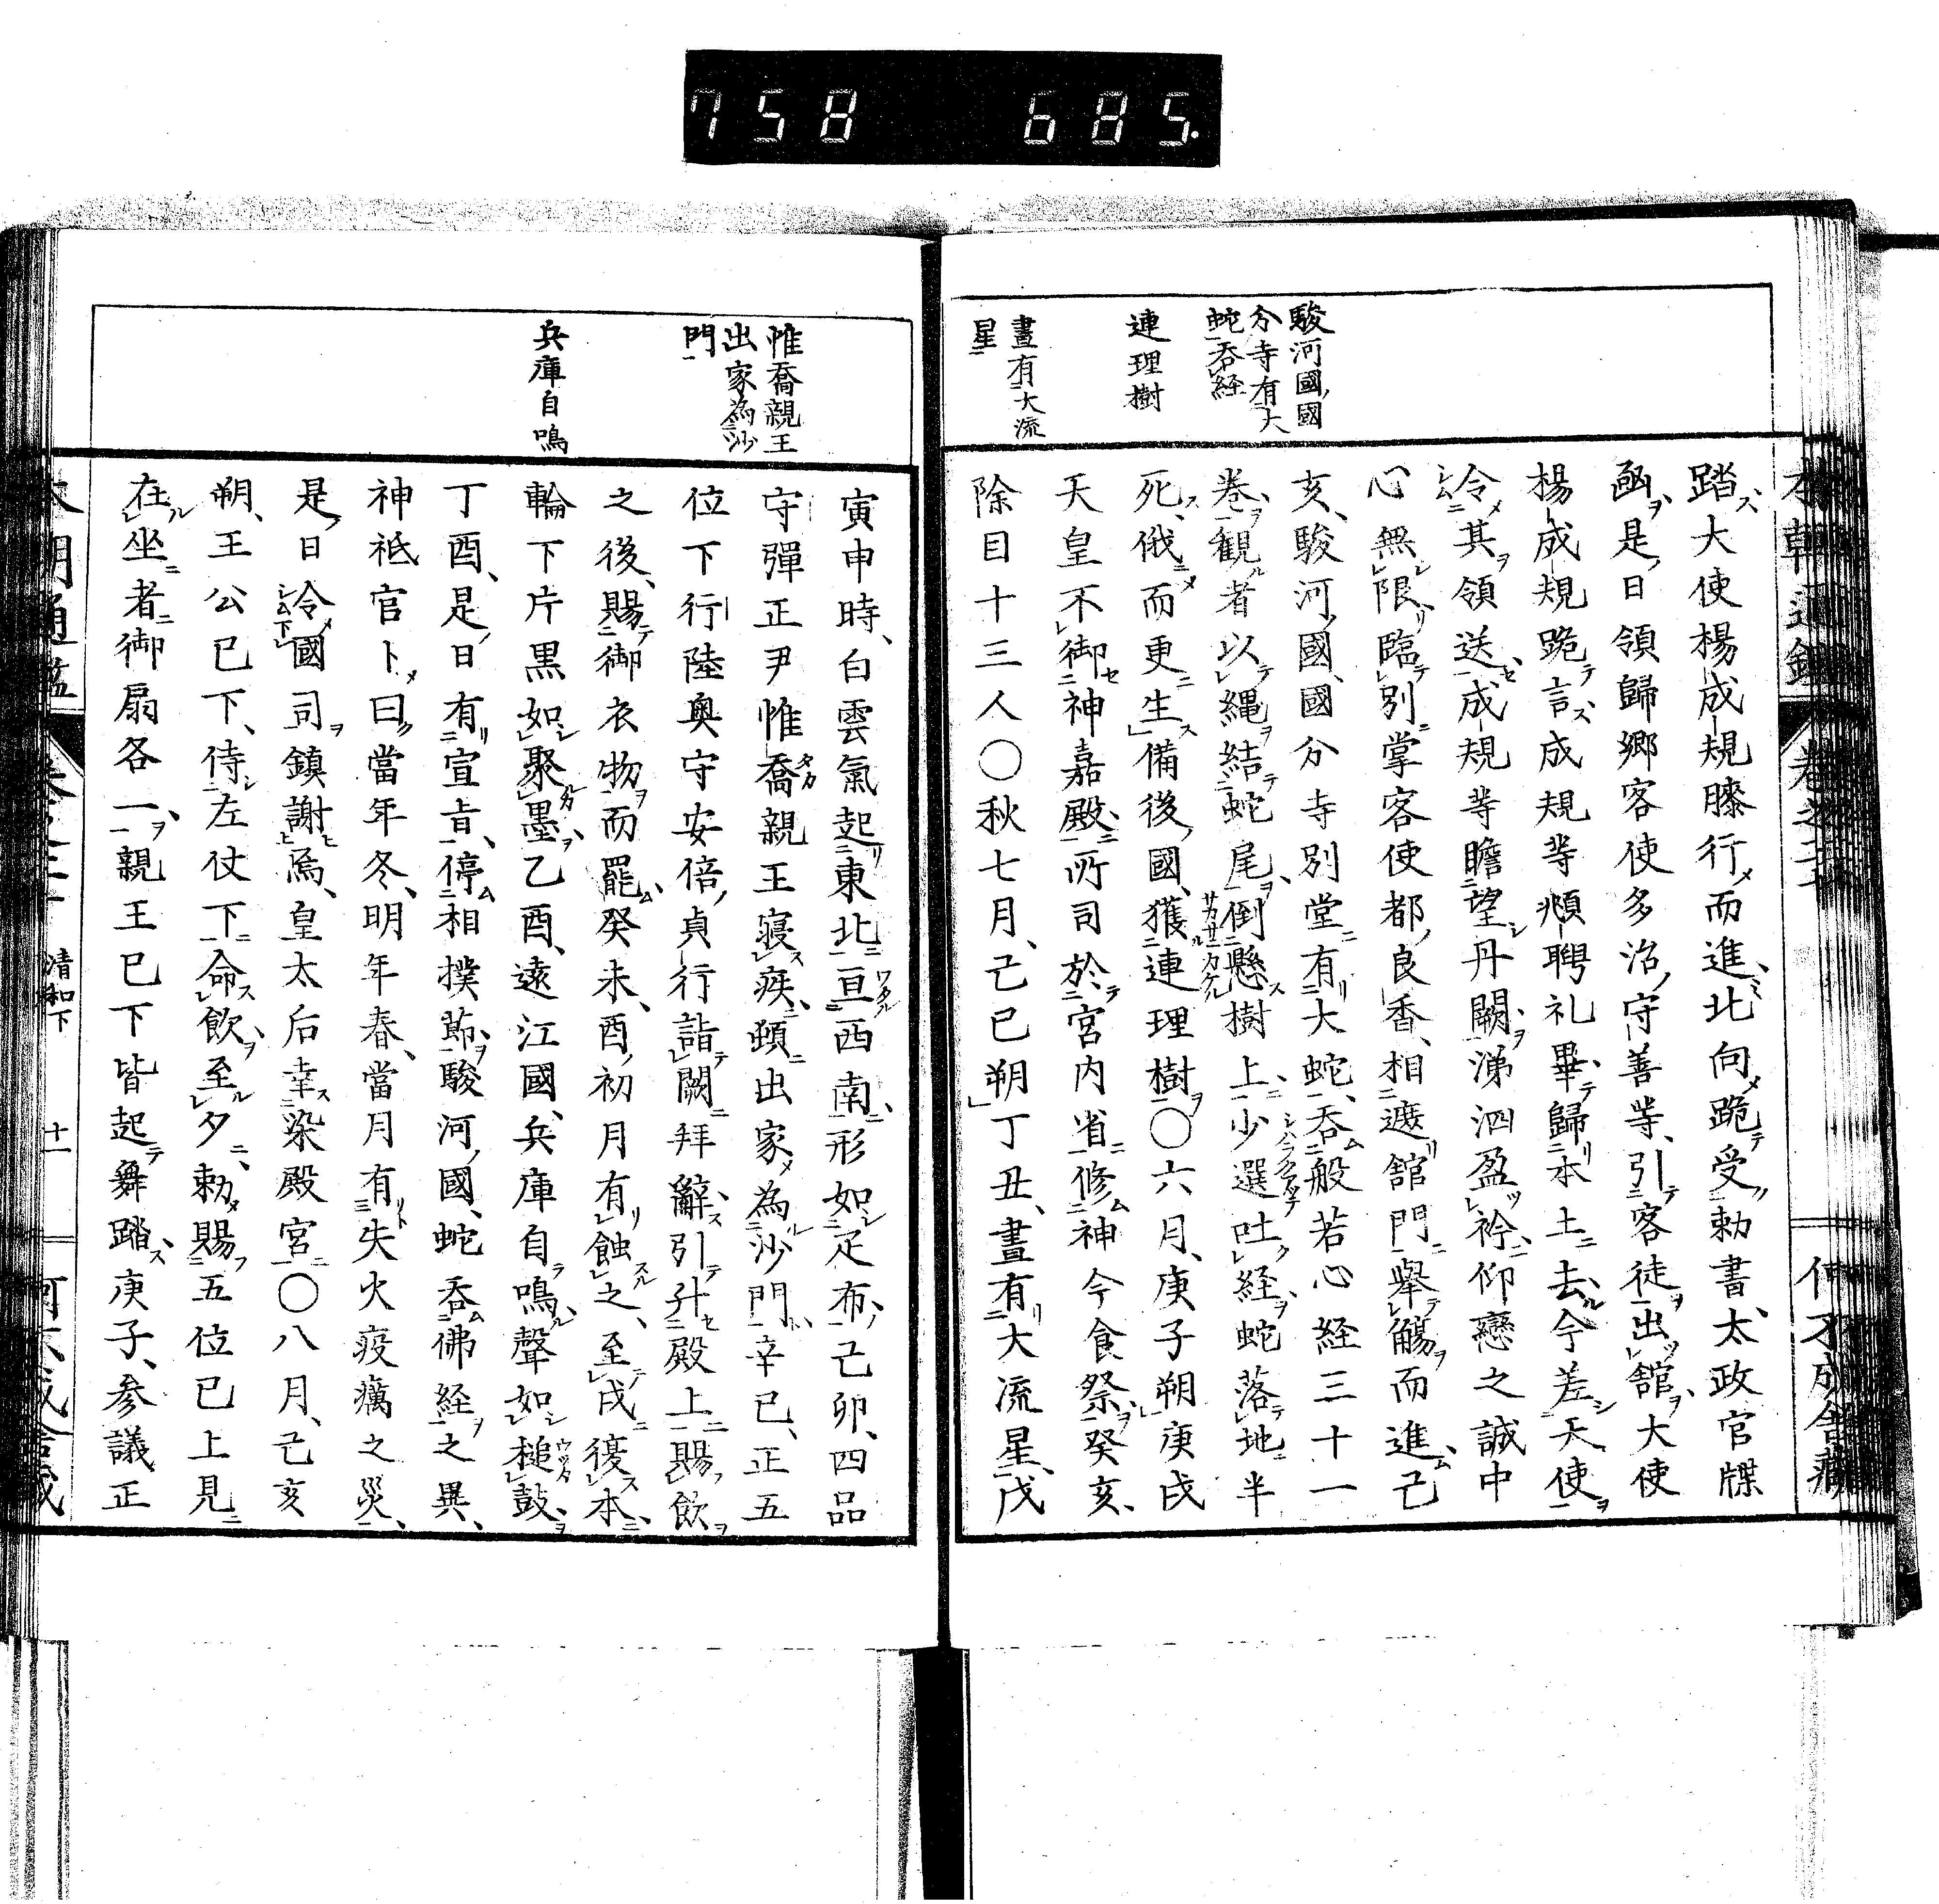 758 685.
駿河國國
分寺有大
蛇吞経
連理樹
晝有大流
星
踏大使楊成規膝行而進北向跪受勅書太政官牒
凾是日領歸郷客使多治守善等引客徒出舘大使
楊成規跪言成規等䫉聘礼畢歸本土去今差天使
令其領送成規等瞻望丹闕涕泗盈衿仰戀之誠中
心無限臨別掌客使都良香相遮舘門舉觴而進己
亥駿河國國分寺別堂有大蛇吞般若心経三十一
卷觀者以縄結蛇尾倒懸樹上少選吐経蛇落地半
死俄而更生備後國獲連理樹〇六月庚子朔庚戌
天皇不御神嘉殿所司於宮内省修神今食祭癸亥
除目十三人〇秋七月己巳朔丁丑晝有大流星戊
惟喬親王
出家為沙
門
兵庫自鳴
寅申時白雲氣起東北亘西南形如疋布己卯四品
守彈正尹惟喬親王寢疾頓出家為沙門辛巳正五
位下行陸奥守安倍貞行詣闕拜辭引升殿上賜飲
之後賜御衣物而罷癸未酉初月有蝕之至戌復本
輪下片黒如聚墨乙酉遠江國兵庫自鳴聲如槌鼓
丁酉是日有宣旨停相撲節駿河國蛇吞佛経之異
神祇官卜曰當年冬明年春當月有失火疫癘之災
是日令國司鎮謝焉皇太后幸染殿宮〇八月己亥
朔王公已下侍左仗下命飲至夕勅賜五位已上見
在坐者御扇各一親王已下皆起舞踏庚子参議正
清和下
十一